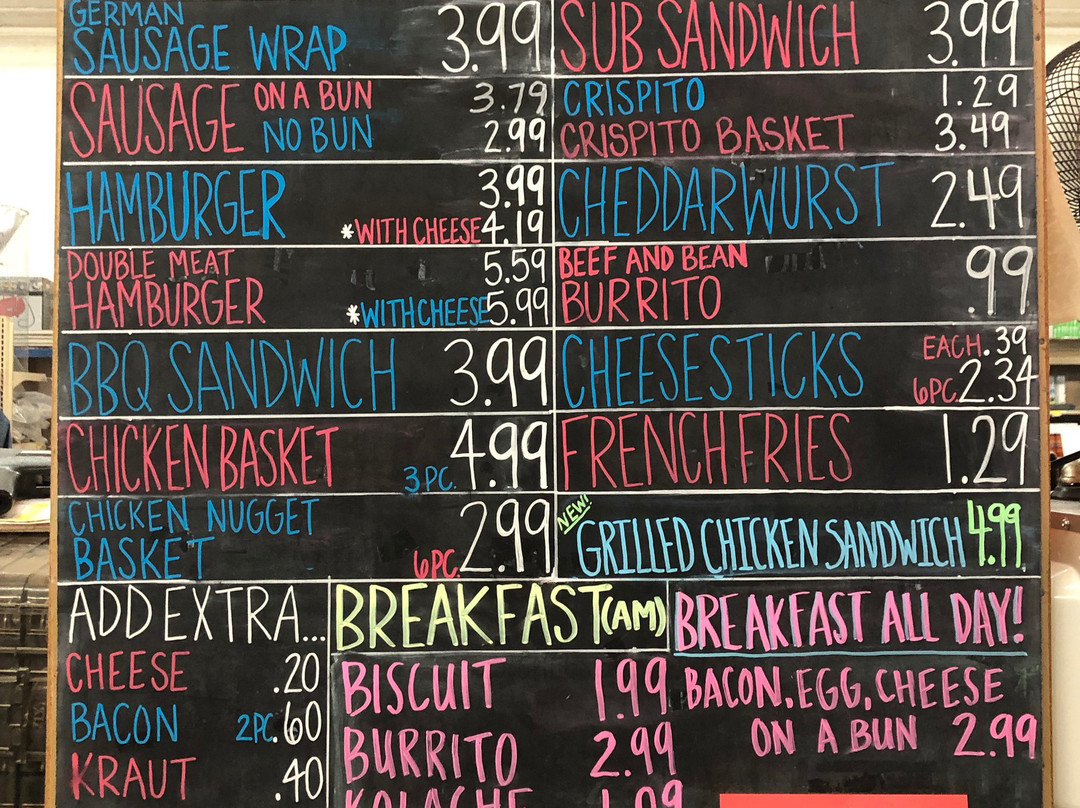 GERMAN
SAUSAGE WRAP 3.99
SAUSAGE ON A BUN 3.79
NO BUN 2.99
HAMBURGER 3.99
*WITH CHEESE 4.19
DOUBLE MEAT 5.59
HAMBURGER *WITH CHEESE 5.99
BBQ SANDWICH 3.99
CHICKEN BASKET 3 PC. 4.99
CHICKEN NUGGET
BASKET 6 PC. 2.99
SUB SANDWICH 3.99
CRISPITO 1.29
CRISPITO BASKET 3.49
CHEDDARWURST 2.49
BEEF AND BEAN
BURRITO .99
CHEESESTICKS EACH .39
6 PC. 2.34
FRENCH FRIES 1.29
NEW!
GRILLED CHICKEN SANDWICH 4.99
ADD EXTRA...
CHEESE .20
BACON 2 PC. .60
KRAUT .40
BREAKFAST (AM)
BISCUIT 1.99
BURRITO 2.99
KOLACHE 1.09
BREAKFAST ALL DAY!
BACON, EGG, CHEESE
ON A BUN 2.99